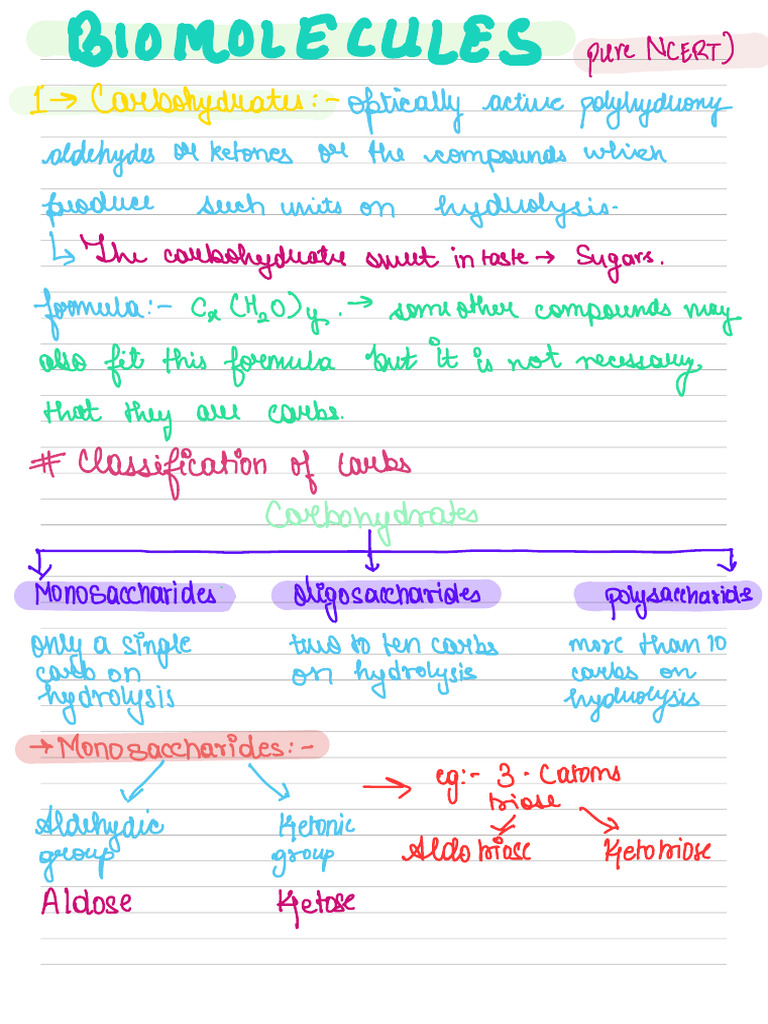 BIOMOLECULES pure NCERT)
1 → Carbohydrates:- optically active polyhydroxy
aldehydes or ketones or the compounds which
produce such units on hydrolysis-
↳ The carbohydrate sweet in taste → Sugars.
formula:- Cx(H2O)y. → some other compounds may
also fit this formula but it is not necessary
that they are carbs.
# Classification of carbs
Carbohydrates
Monosaccharides oligosaccharides polysaccharide
only a single two to ten carbs more than 10
carb on on hydrolysis carbs on
hydrolysis hydrolysis
→ Monosaccharides:-
→ eg:- 3 - Catoms
triose
Aldehydic Ketonic Aldotriose Ketotriose
group group
Aldose Ketose